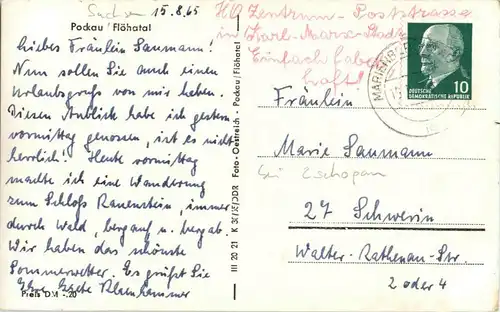 Sachsen 15.8.65
Pockau / Flöhatal
Liebes Fräulein Saumann!
Nun sollen Sie auch einen
Urlaubsgruß von mir haben.
Diesen Anblick habe ich gestern
vormittag genossen, ist es nicht
herrlich! Heute vormittag
machte ich eine Wanderung
zum Schloß Rauenstein, immer
durch Wald, bergauf u. bergab.
Wir haben das schönste
Sommerwetter. Es grüßt Sie
Ihre
Preis DM -.20
III 20 21 K 3f/65/DDR Foto-Oestreich - Pockau/Flöhatal
HO Zentrum-Poststrasse
in Karl-Marx-Stadt
Einfach fabel
haft!
MARIENBERG
10
DEUTSCHE
DEMOKRATISCHE REPUBLIK
Fräulein
Marie Saumann
bei Zschopau
27 Schwerin
Walter-Rathenau-Str.
2 oder 4